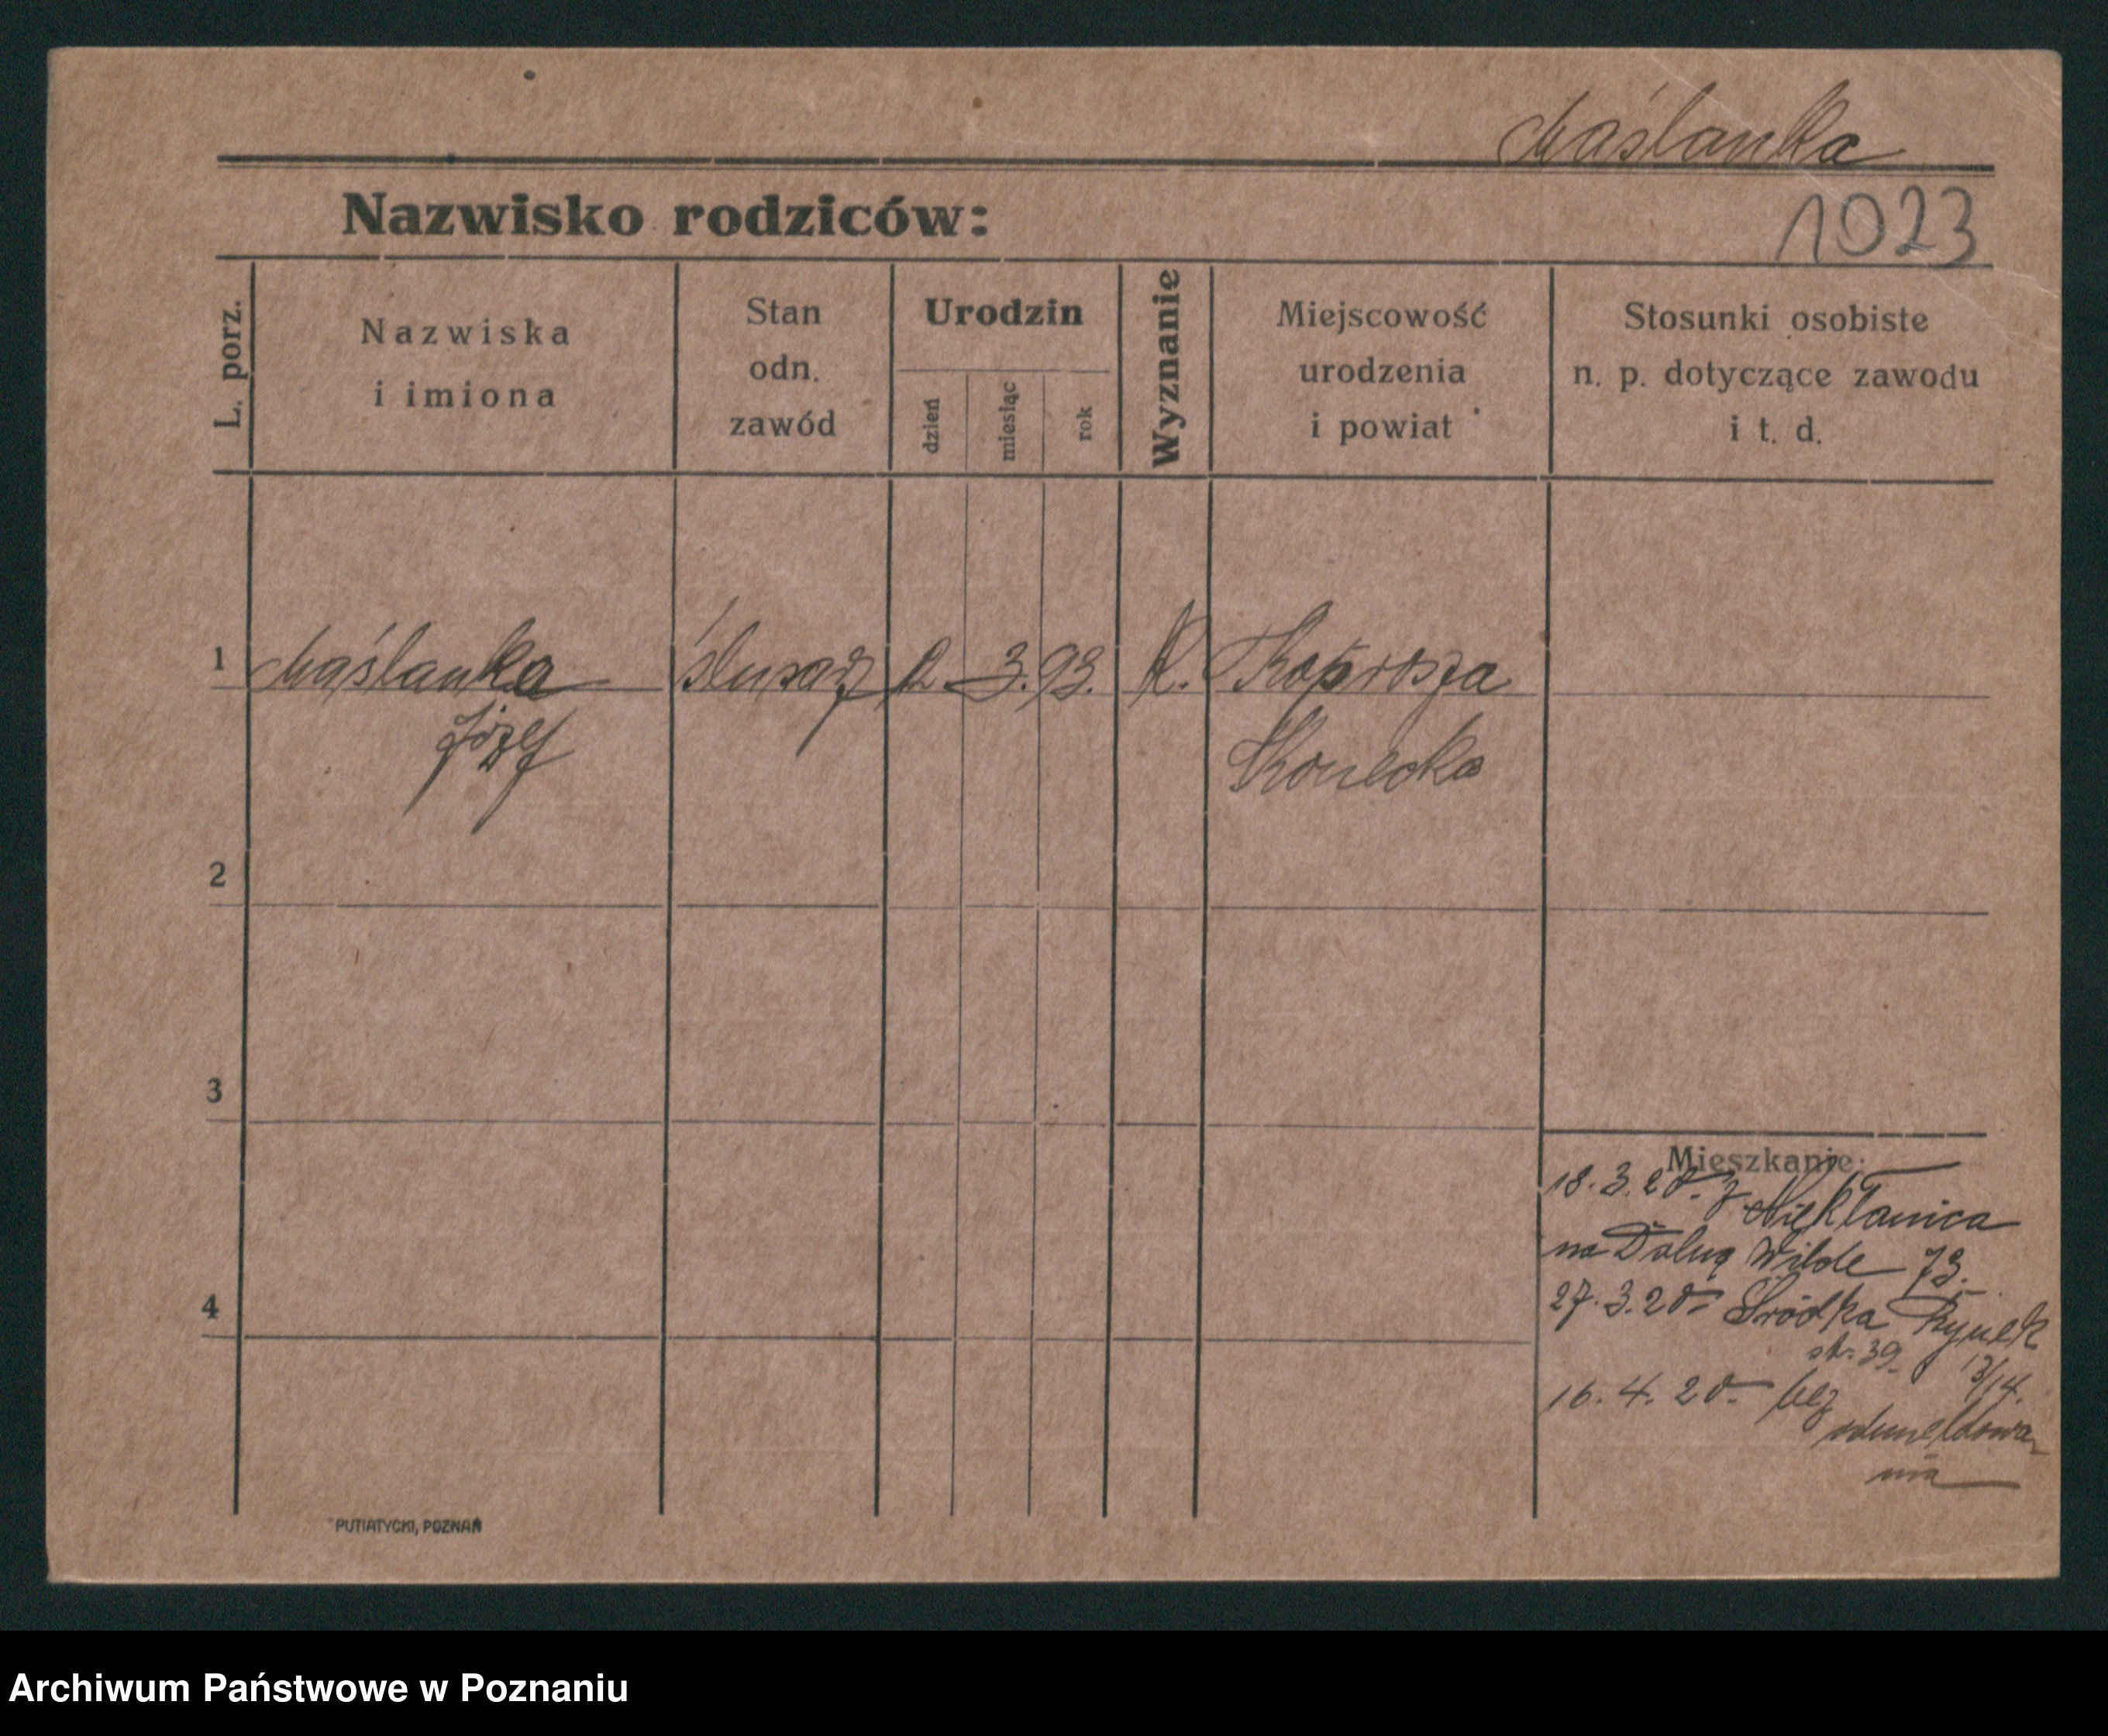 Maślanka
Nazwisko rodziców:
1023
L. porz.
Nazwiska
i imiona
Stan
odn.
zawód
Urodzin
dzień
miesiąc
rok
Wyznanie
Miejscowość
urodzenia
i powiat
Stosunki osobiste
n. p. dotyczące zawodu
i t. d.
1
Maślanka
Józef
ślusarz
3.
93.
K.
2
3
4
Mieszkanie:
18. 3. 20. z
na Dolną Wildę 73.
27. 3. 20. Śródka Rynek
str. 39. 13/14.
16. 4. 20. bez
odmeldowa-
nia
PUTIATYCKI, POZNAŃ
Archiwum Państwowe w Poznaniu